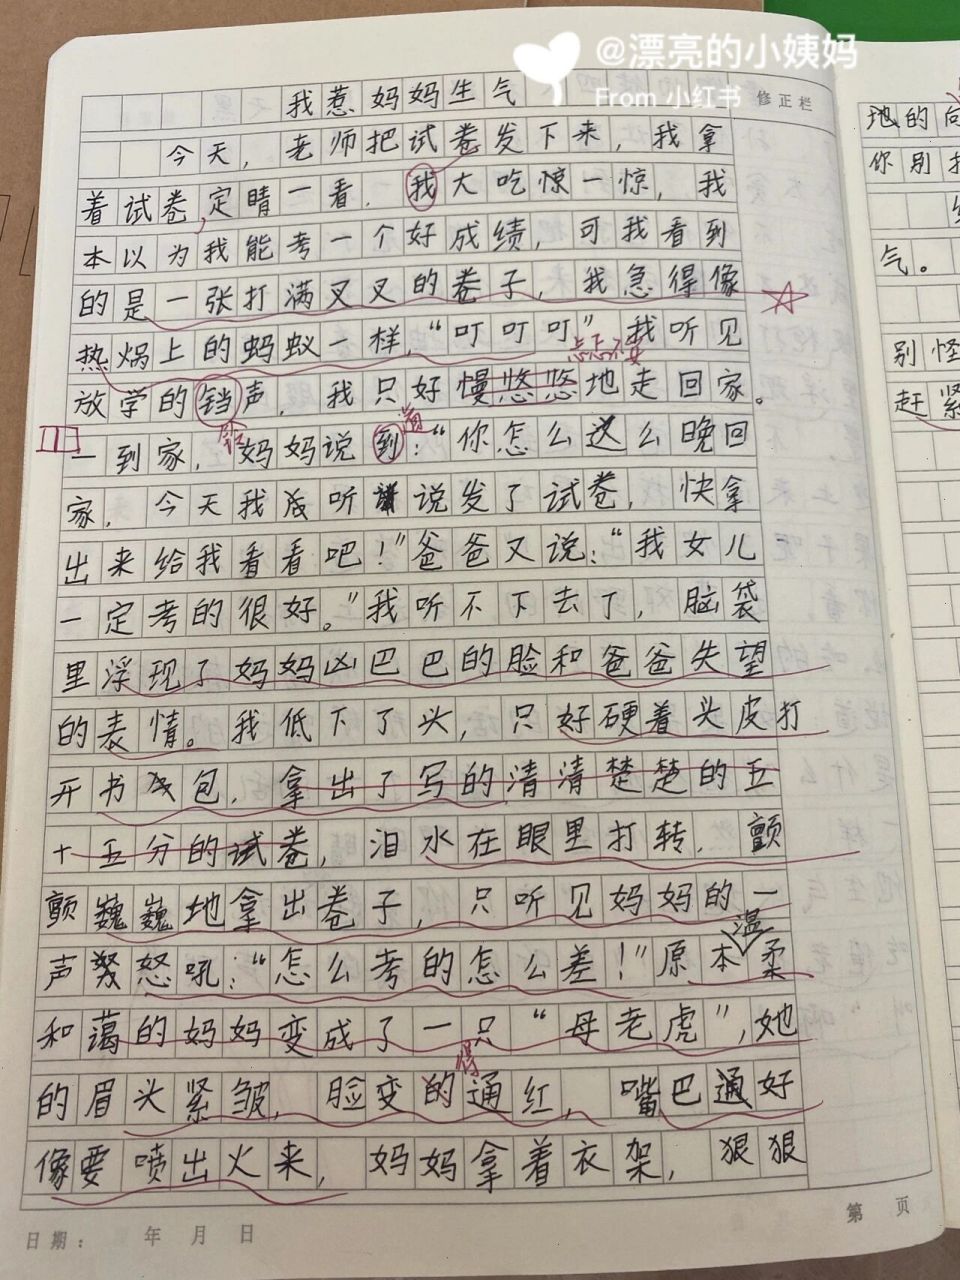 @漂亮的小姨妈
From 小红书
修正栏
我惹妈妈生气
今天，老师把试卷发下来，我拿
着试卷，定晴一看，我大吃惊一惊，我
本以为我能考一个好成绩，可我看到
的是一张打满叉叉的卷子，我急得像
热焗上的蚂蚁一样，“叮叮叮”我听见
放学的铛声，我只好慢悠悠地走回家。
铃
着
一到家，妈妈说到：“你怎么这么晚回
家，今天我听说发了试卷，快拿
出来给我看看吧！”爸爸又说：“我女儿
一定考的很好。”我听不下去了，脑袋
里浮现了妈妈凶巴巴的脸和爸爸失望
的表情。我低下了头，只好硬着头皮打
开书包，拿出了写的清清楚楚的五
十五分的试卷，泪水在眼里打转，颤
颤巍巍地拿出卷子，只听见妈妈的一
声怒吼：“怎么考的怎么差！”原本温柔
和蔼的妈妈变成了一只“母老虎”，她
得
的眉头紧皱，脸变的通红，嘴巴通好
像要喷出火来，妈妈拿着衣架，狠狠
日期： 年 月 日
第 页
地的向
你别
气。
别怪
赶紧